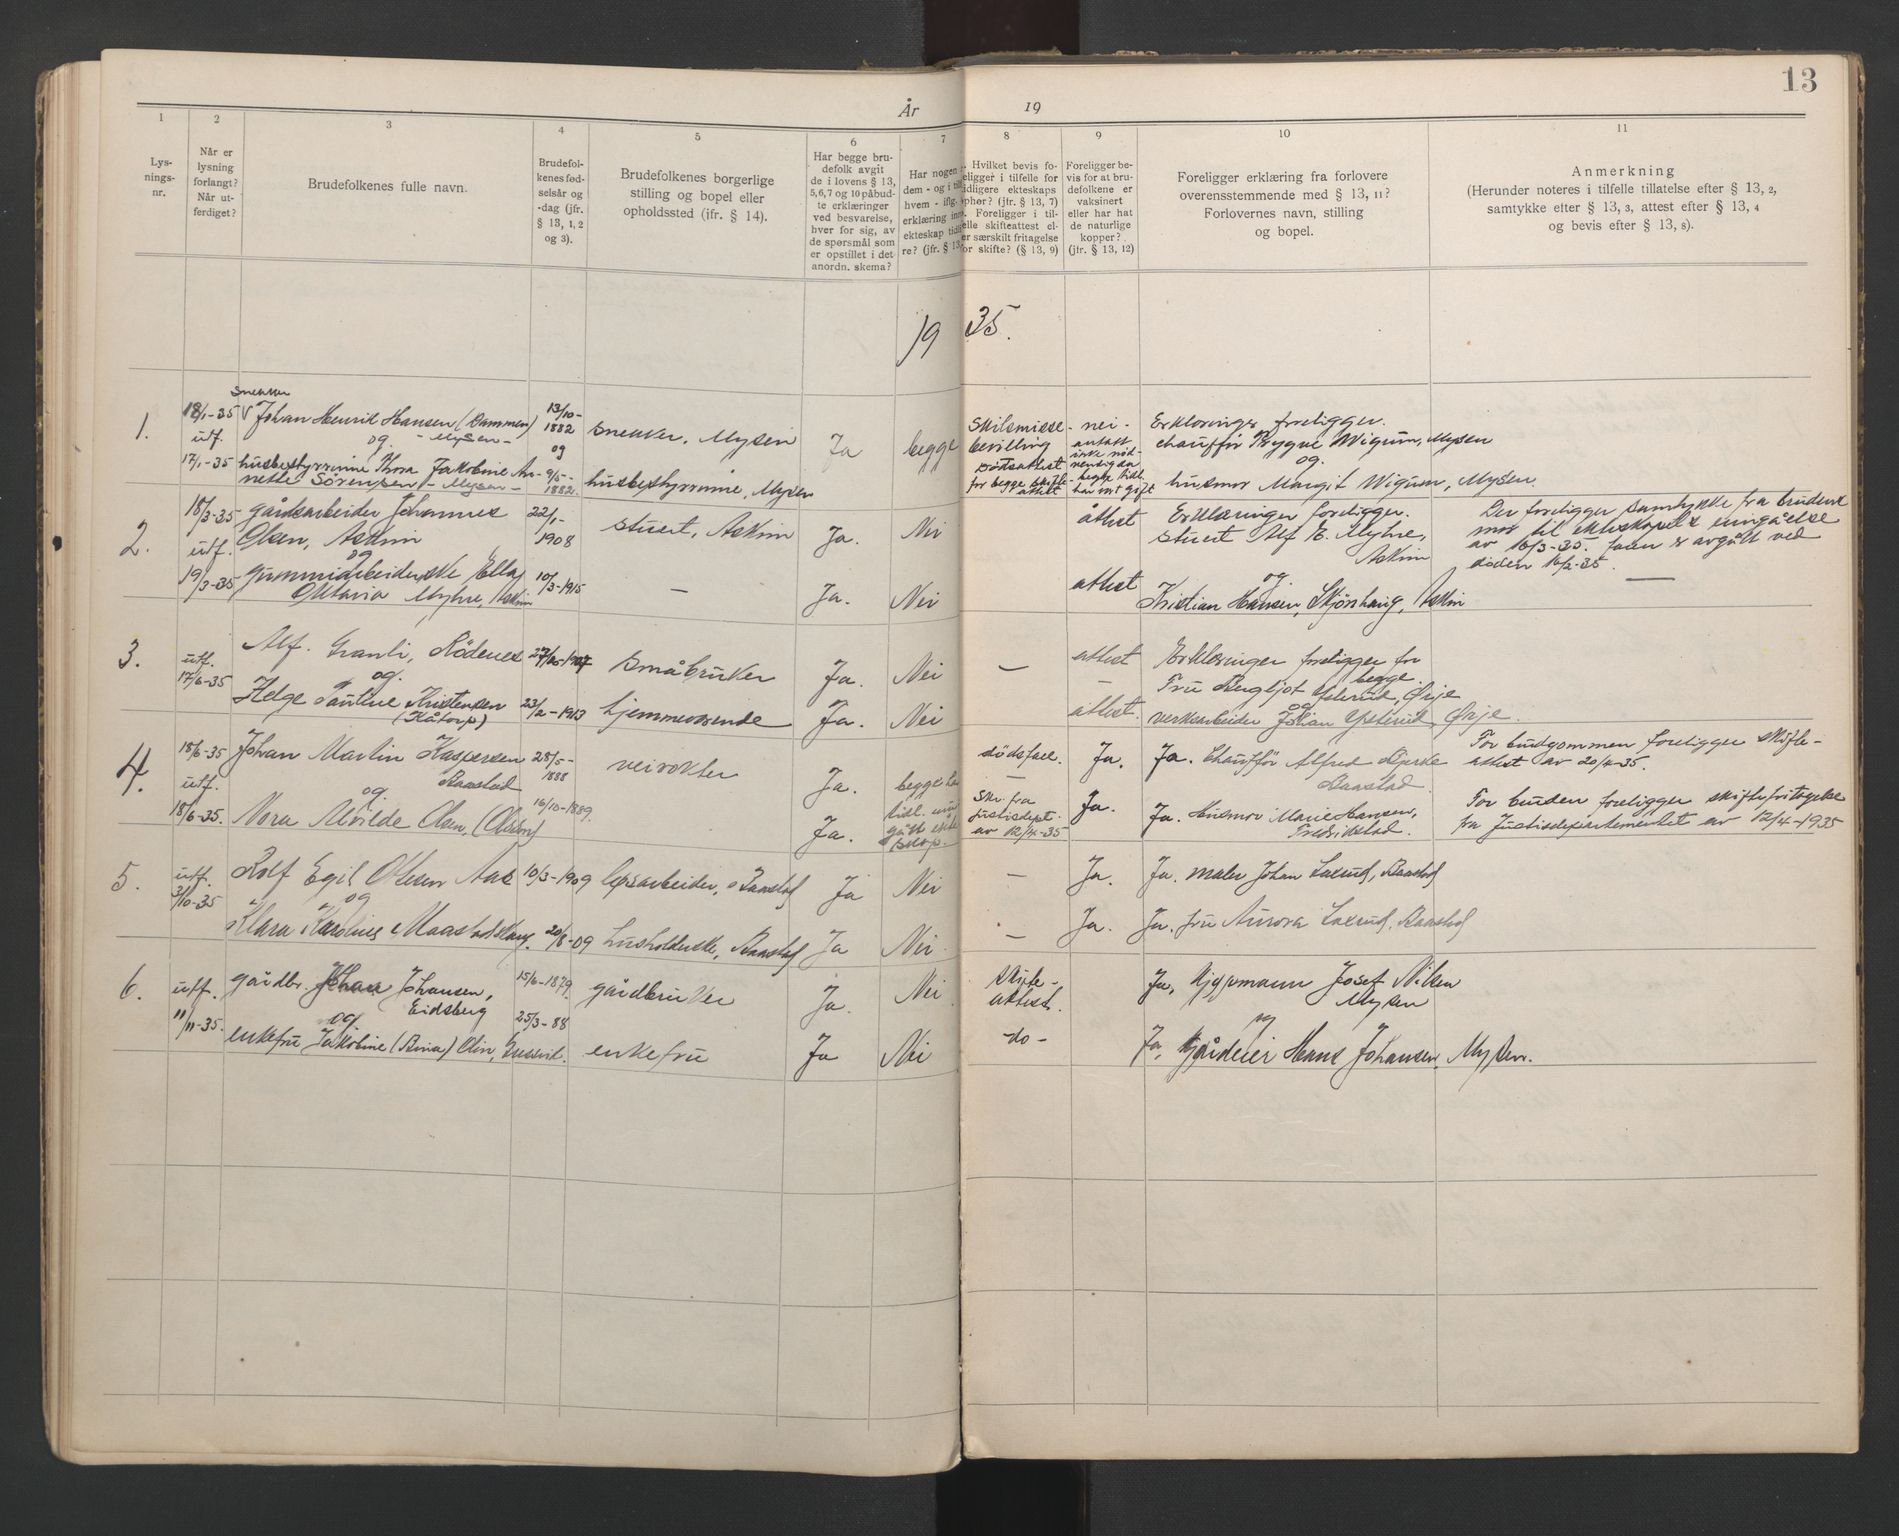 13
År 19
1 2 3 4 5 6 7 8 9 10 11
Lys-
nings-
nr.
Når er
lysning
forlangt?
Når ut-
ferdiget?
Brudefolkenes fulle navn.
Brudefol-
kenes fød-
selsår og
-dag (jfr.
§ 13, 1, 2
og 3).
Brudefolkenes borgerlige
stilling og bopel eller
opholdssted (jfr. § 14).
Har begge bru-
defolk avgit
de i lovens § 13,
5,6,7 og 10 påbud-
te erklæringer
ved besvarelse,
hver for sig, av
de spørsmål som
er opstillet i det
anordn. skema?
Har nogen
dem - og i til
hvem - iflg.
erklæring inn
ekteskap tidli
re? (jfr. § 13
Hvilket bevis fo-
eligger i tilfelle for
idligere ekteskaps
ophør? (jtr. § 13, 7)
. Foreligger i til-
elle skifteattest el-
er særskilt fritagelse
for skifte? (§ 13, 9)
Foreligger be-
vis for at bru-
defolkene er
vaksinert
eller har hat
de naturlige
kopper?
(jtr. § 13, 12)
Foreligger erklæring fra forlovere
overensstemmende med § 13, 11?
Forlovernes navn, stilling
og bopel.
Anmerkning
(Herunder noteres i tilfelle tillatelse efter § 13, 2,
samtykke efter § 13, 3, attest efter § 13, 4
og bevis efter § 13, 8).
1935.
1.
18/1-35
utf.
17/1-35
snekker
Johan Henrik Hansen (Dammen)
og - Mysen -
husbestyrerinne Thora Jakobine An-
nette Sörensen - Mysen -
13/10-
1882
og
9/5-
1882.
snekker, Mysen
husbestyrerinne, Mysen
Ja
begge
Skilsmisse-
bevilling
Dødsattest
for begge skifte-
attest
nei-
antatt
ikke nød-
nendig da
begge tidl.
har vært gift
Erklæringer foreligger.
chaufför Trygve Wigum, Mysen
og
husmor Margit Wigum, Mysen.
2.
18/3-35
utf.
19/3-35
gårdsarbeider Johannes
Olsen, Askim
og
gummiarbeiderske Ella
Oktavia Myhre, Askim
22/1-
1908
10/3-1915
stuert, Askim
-
Ja.
Ja.
Nei
Nei
attest
attest
Erklæringer foreligger.
stuert Alf E. Myhre,
Askim
og
Kristian Hansen, Skjörshaug, Askim
Der foreligger samtykke fra brudens
mor til ekteskapets inngåelse
av 16/3-35. faren er avgått ved
döden 16/2-35.
3.
utf.
17/6-35
Alf. Granli, Rödenes
og.
Helge Pauline Kristensen
(Kåtorp)
23/2-1913
småbruker
hjemmeværende
Ja.
Ja.
Nei
Nei
-
attest
-
attest.
Erklæringer foreligger for
begge.
Fru Bergljot Ysterud, Ørje
og
verksarbeider Johan Ysterud, Ørje.
4.
18/6-35
utf.
18/6-35.
Johan Martin Kaspersen
Raastad
og
Nora Alvilde Olsen, (Olsen)
28/5-
1888
16/10-1889.
veivokter
Ja.
Ja.
begge ha
tidl. inn
gått ekte
skap.
dödsfall.
-
Skr. fra
Justisdept.
av 12/4-35
Ja.
Ja.
Ja. Chaufför Alfred Bjerke
Raastad.
Ja. Husmor Marie Hansen,
Fredrikstad.
For brudgommen foreligger skifte-
attest av 20/4-35.
For bruden foreligger skiftefritagelse
fra Justisdepartementet av 12/4-1935
5.
utf.
3/10-35
Rolf Egil Olsen Aas
og
Klara Karoline Maastad
10/3-1909
20/8-09
husholderske, Raastad
Ja
Ja
Nei
Nei.
-
-
Ja.
Ja.
Ja. maler Johan Laxrud, Raastad
Ja. fru Aurora Laxrud, Raastad
6.
utf.
11/11-35.
gårdbr. Johan Johansen,
Eidsberg
og
enkefru Jakobine (Bina) Olin,
15/6-1879.
25/3-88
gårdbruker
enkefru
Ja.
Ja
Nei
Nei
skifte-
attest.
-do-
Ja, Josef Nilsen
Mysen
og
Ja, gårdeier Hans Johansen, Mysen.